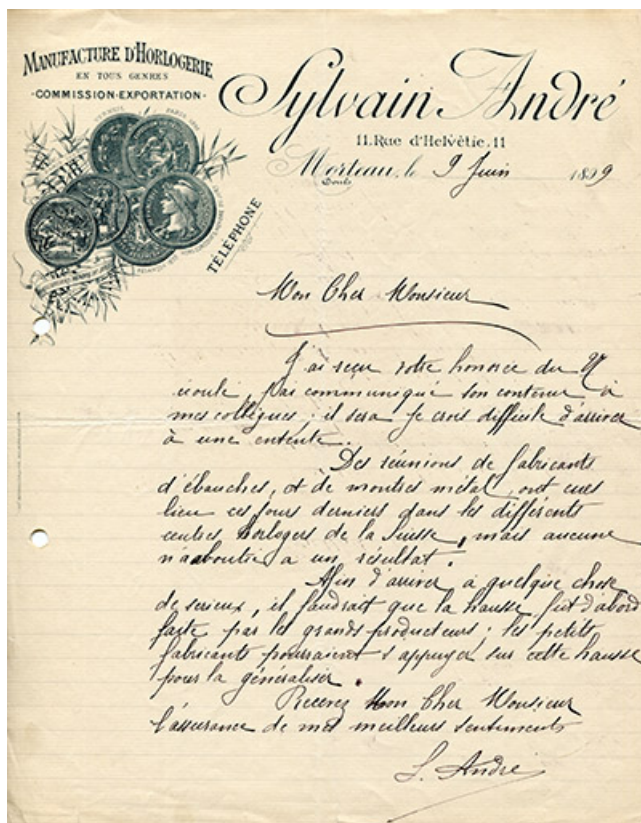 MANUFACTURE D'HORLOGERIE
EN TOUS GENRES
COMMISSION-EXPORTATION
Sylvain André
11. Rue d'Helvétie. 11
Morteau, le 9 Juin 1899
Doubs
TÉLÉPHONE
Mon Cher Monsieur
J'ai reçu votre honorée du 27
écoulé, j'ai communiqué son contenu à
mes collègues; il sera je crois difficile d'arriver
à une entente.
Des réunions de fabricants
d'ébauches, et de montres métal, ont eues
lieu ces jours derniers dans les différents
centres horlogers de la Suisse, mais aucune
n'a aboutie a un résultat.
Afin d'arriver a quelque chose
de serieux, il faudrait que la hausse fut d'abord
faite par les grands producteurs; les petits
fabricants pourraient s'appuyer sur cette hausse
pour la généraliser.
Recevez Mon Cher Monsieur
l'assurance de mes meilleurs sentiments
S. André